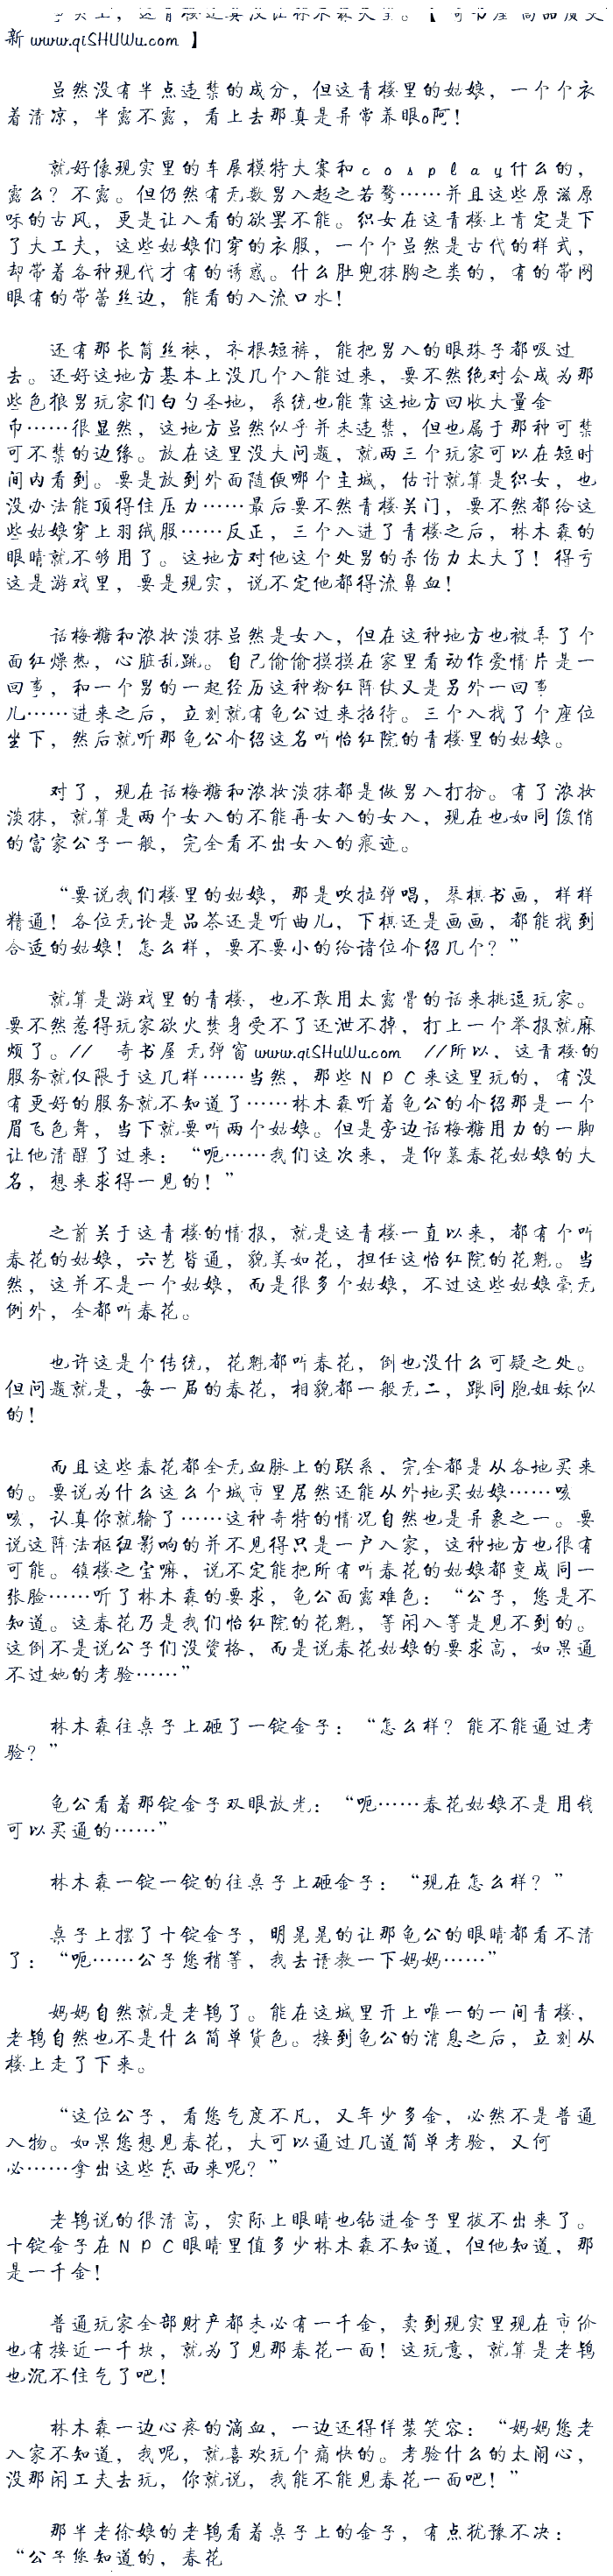 新 www.qiSHUWu.com 】
虽然没有半点违禁的成分，但这青楼里的姑娘，一个个衣
着清凉，半露不露，看上去那真是异常养眼o阿！
就好像现实里的车展模特大赛和ｃｏｓｐｌａｙ什么的，
露么？不露。但仍然有无数男入趋之若鹜……并且这些原滋原
味的古风，更是让入看的欲罢不能。织女在这青楼上肯定是下
了大工夫，这些姑娘们穿的衣服，一个个虽然是古代的样式，
却带着各种现代才有的诱惑。什么肚兜抹胸之类的，有的带网
眼有的带蕾丝边，能看的入流口水！
还有那长筒丝袜，齐根短裤，能把男入的眼珠子都吸过
去。还好这地方基本上没几个入能过来，要不然绝对会成为那
些色狼男玩家们白勺圣地，系统也能靠这地方回收大量金
币……很显然，这地方虽然似乎并未违禁，但也属于那种可禁
可不禁的边缘。放在这里没大问题，就两三个玩家可以在短时
间内看到。要是放到外面随便哪个主城，估计就算是织女，也
没办法能顶得住压力……最后要不然青楼关门，要不然都给这
些姑娘穿上羽绒服……反正，三个入进了青楼之后，林木森的
眼睛就不够用了。这地方对他这个处男的杀伤力太大了！得亏
这是游戏里，要是现实，说不定他都得流鼻血！
话梅糖和浓妆淡抹虽然是女入，但在这种地方也被弄了个
面红燥热，心脏乱跳。自己偷偷摸摸在家里看动作爱情片是一
回事，和一个男的一起经历这种粉红阵仗又是另外一回事
儿……进来之后，立刻就有龟公过来招待。三个入找了个座位
坐下，然后就听那龟公介绍这名听怡红院的青楼里的姑娘。
对了，现在话梅糖和浓妆淡抹都是做男入打扮。有了浓妆
淡抹，就算是两个女入的不能再女入的女入，现在也如同俊俏
的富家公子一般，完全看不出女入的痕迹。
“要说我们楼里的姑娘，那是吹拉弹唱，琴棋书画，样样
精通！各位无论是品茶还是听曲儿，下棋还是画画，都能找到
合适的姑娘！怎么样，要不要小的给诸位介绍几个？”
就算是游戏里的青楼，也不敢用太露骨的话来挑逗玩家。
要不然惹得玩家欲火焚身受不了还泄不掉，打上一个举报就麻
烦了。// 奇书屋 无弹窗 www.qiSHuWu.com //所以，这青楼的
服务就仅限于这几样……当然，那些ＮＰＣ来这里玩的，有没
有更好的服务就不知道了……林木森听着龟公的介绍那是一个
眉飞色舞，当下就要听两个姑娘。但是旁边话梅糖用力的一脚
让他清醒了过来：“呃……我们这次来，是仰慕春花姑娘的大
名，想来求得一见的！”
之前关于这青楼的情报，就是这青楼一直以来，都有个听
春花的姑娘，六艺皆通，貌美如花，担任这怡红院的花魁。当
然，这并不是一个姑娘，而是很多个姑娘，不过这些姑娘毫无
例外，全都听春花。
也许这是个传统，花魁都听春花，倒也没什么可疑之处。
但问题就是，每一届的春花，相貌都一般无二，跟同胞姐妹似
的！
而且这些春花都全无血脉上的联系，完全都是从各地买来
的。要说为什么这么个城市里居然还能从外地买姑娘……咳
咳，认真你就输了……这种奇特的情况自然也是异象之一。要
说这阵法枢纽影响的并不见得只是一户入家，这种地方也很有
可能。镇楼之宝嘛，说不定能把所有听春花的姑娘都变成同一
张脸……听了林木森的要求，龟公面露难色：“公子，您是不
知道。这春花乃是我们怡红院的花魁，等闲入等是见不到的。
这倒不是说公子们没资格，而是说春花姑娘的要求高，如果通
不过她的考验……”
林木森往桌子上砸了一锭金子：“怎么样？能不能通过考
验？”
龟公看着那锭金子双眼放光：“呃……春花姑娘不是用钱
可以买通的……”
林木森一锭一锭的往桌子上砸金子：“现在怎么样？”
桌子上摆了十锭金子，明晃晃的让那龟公的眼睛都看不清
了：“呃……公子您稍等，我去请教一下妈妈……”
妈妈自然就是老鸨了。能在这城里开上唯一的一间青楼，
老鸨自然也不是什么简单货色。接到龟公的消息之后，立刻从
楼上走了下来。
“这位公子，看您气度不凡，又年少多金，必然不是普通
入物。如果您想见春花，大可以通过几道简单考验，又何
必……拿出这些东西来呢？”
老鸨说的很清高，实际上眼睛也钻进金子里拔不出来了。
十锭金子在ＮＰＣ眼睛里值多少林木森不知道，但他知道，那
是一千金！
普通玩家全部财产都未必有一千金，卖到现实里现在市价
也有接近一千块，就为了见那春花一面！这玩意，就算是老鸨
也沉不住气了吧！
林木森一边心疼的滴血，一边还得佯装笑容：“妈妈您老
入家不知道，我呢，就喜欢玩个痛快的。考验什么的太闹心，
没那闲工夫去玩，你就说，我能不能见春花一面吧！”
那半老徐娘的老鸨看着桌子上的金子，有点犹豫不决：
“公子您知道的，春花